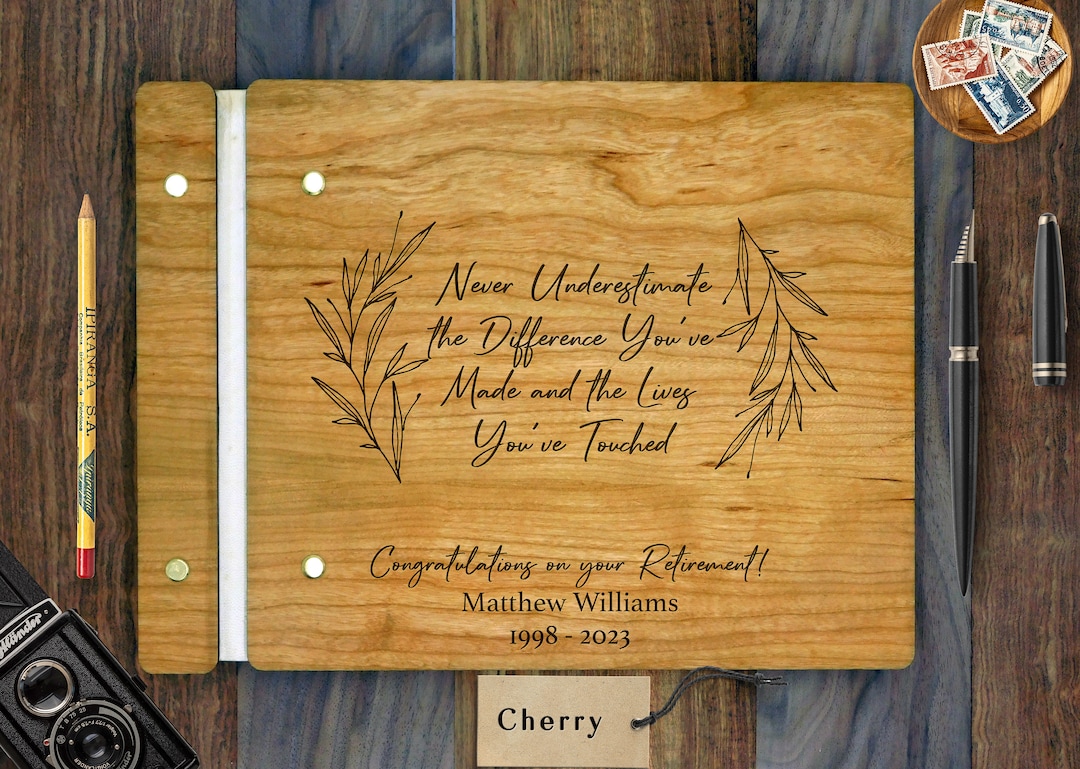 Never Underestimate
the Difference You've
Made and the Lives
You've Touched
Congratulations on your Retirement!
Matthew Williams
1998 - 2023
Cherry
IPIRANGA S.A.